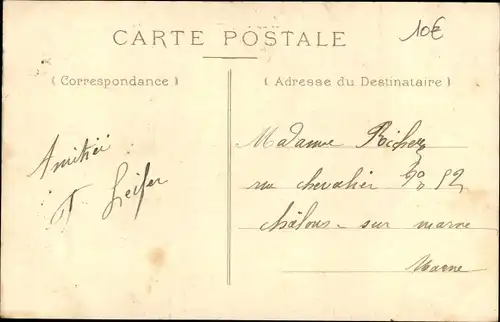 10€
CARTE POSTALE
(Correspondance)
(Adresse du Destinataire)
Amitiés
Madame Richez
rue chevalier No 52
châlons-sur marne
Marne